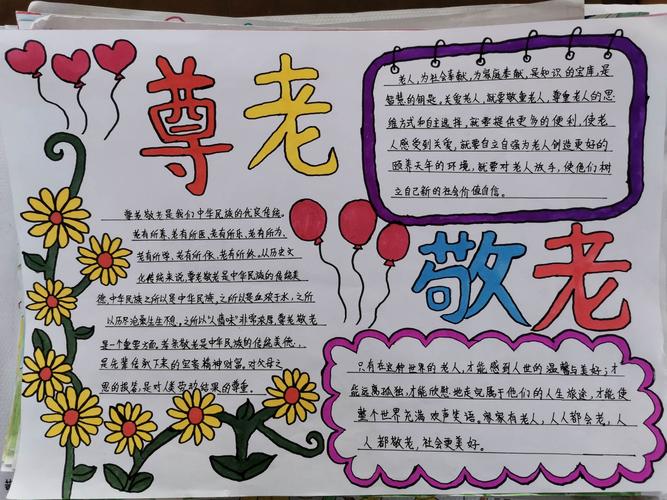 尊老
老人,为社会奉献,为家庭奉献,是知识的宝库,是
智慧的钥匙,关爱老人,就要敬重老人,尊重老人的思
维方式和自主选择,就要提供更多的便利,使老
人感受到关爱,就要自立自强为老人创造更好的
颐养天年的环境,就要对老人放手,使他们树
立自己新的社会价值自信。
尊老敬老是我们中华民族的优良传统。
老有所养、老有所医、老有所乐、老有所为、
老有所学、老有所依、老有所终。从历史文
化传统来说,尊老敬老是中华民族的传统美
德,中华民族之所以是中华民族,之所以是血浓于水,之所
以历尽沧桑生生不息,之所以"人情味"非常浓厚,尊老敬老
是一个重要方面,若亲敬老是中华民族的传统美德,
是先辈传承下来的宝贵精神财富,对父母之
恩的报答,是对人类劳动结果的尊重。
敬老
只有在这种世界的老人,才能感到人世的温馨与美好;才
能远离孤独,才能欣慰地走完属于他们的人生旅途,才能使
整个世界充满欢声笑语。家家有老人,人人都会老,人
人都敬老,社会更美好。